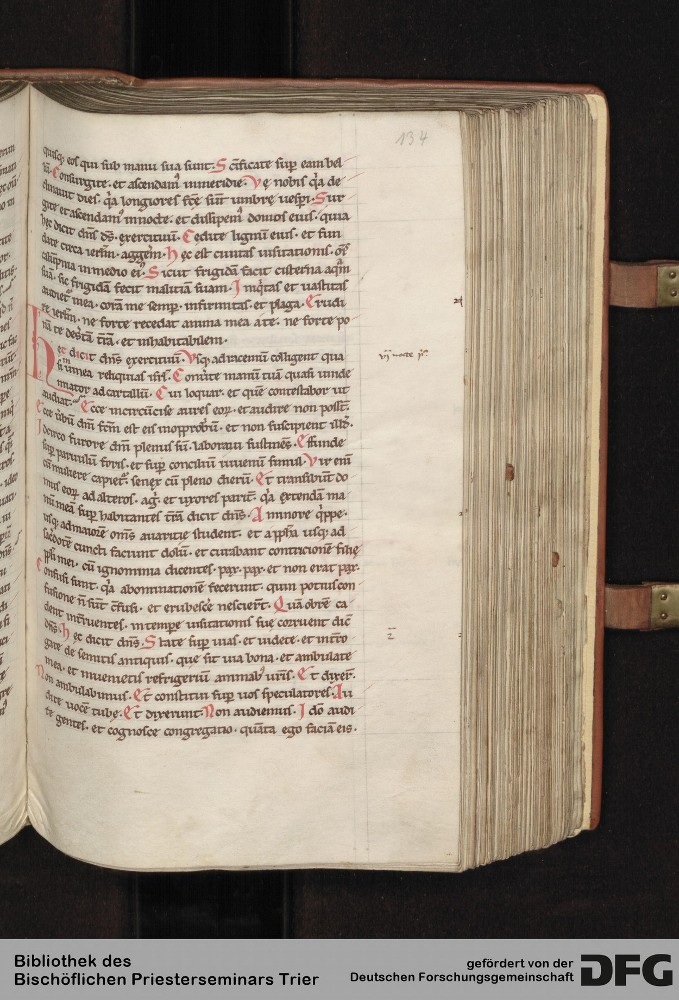 134
quisq; eos qui sub manu sua sunt. Scificate sup eam bel
lū. Consurgite. et ascendam' in meridie. Ve nobis q̄a de
clinauit dies. q̄a longiores fcē sunt umbre uesp̄i. Sur
gite et ascendam' in nocte. et dissipem' domos eius. quia
hec dicit dn̄s ds̄ exercituū. Cedite lignū eius. et fun
date circa ierl̄m aggerē. Hec est ciuitas uisitationis. om̄s
calūpnia in medio ei'. Sicut frigidā facit cisterna aq̄m
suā. sic frigidā fecit maliciā suam. Iniq̄tas et uastitas
audiet' in ea. coram me semp infirmitas et plaga. Erudi
re ierl̄m. ne forte recedat anima mea a te. ne forte po
nā te des̄tā t̄rā. et inhabitabilem.
Hec dicit dn̄s exercituū. Usq; ad racemū colligent qua
si in uinea reliquias isrl. Conūte manū tuā quasi uinde
miator ad cartallū. Cui loquar. et quē contestabor ut
audiat. Ecce incircūcise aures eoꝝ. et audire non posst.
Ecce ūbū dn̄i fc̄m est eis in opprobriū. et non suscipient illd.
Idcirco furore dn̄i plenus sū. laboraui sustinēs. Effunde
sup paruulū foris. et sup conciliū iuuenū simul. Vir enī
cū muliere capiet'. senex cū pleno dierū. Et transibunt do
mus eoꝝ ad alteros. agri et uxores parit. q̄a extendā ma
nū meā sup habitantes t̄rā dicit dn̄s. A minore q̄ppe.
usq; ad maiorē om̄s auaritie student. et a pph̄a usq; ad
sacdotē cuncti faciunt dolū. et curabant contricionē filie
ppl̄i mei. cū ignominia dicentes. pax. pax. et non erat pax.
Confusi sunt. q̄a abominationē fecerunt. quin potius con
fusione n̄ sūt cfusi. et erubescē nescierr̄t. Quā obrē ca
dent int̄ ruentes. in tempore uisitationis sue corruent dic̄
dn̄s. Hec dicit dn̄s. State sup uias. et uidete. et int̄ro
gate de semitis antiquis. que sit uia bona. et ambulate
in ea. et inuenietis refrigeriū animab' ur̄is. Et dixer̄.
Non ambulabimus. Et constitui sup uos speculatores. Au
dite uocē tube. Et dixerunt. Non audiemus. Ideo audi
te gentes. et cognosce congregatio. quāta ego faciā eis.
Bibliothek des
Bischöflichen Priesterseminars Trier
gefördert von der
Deutschen Forschungsgemeinschaft
DFG